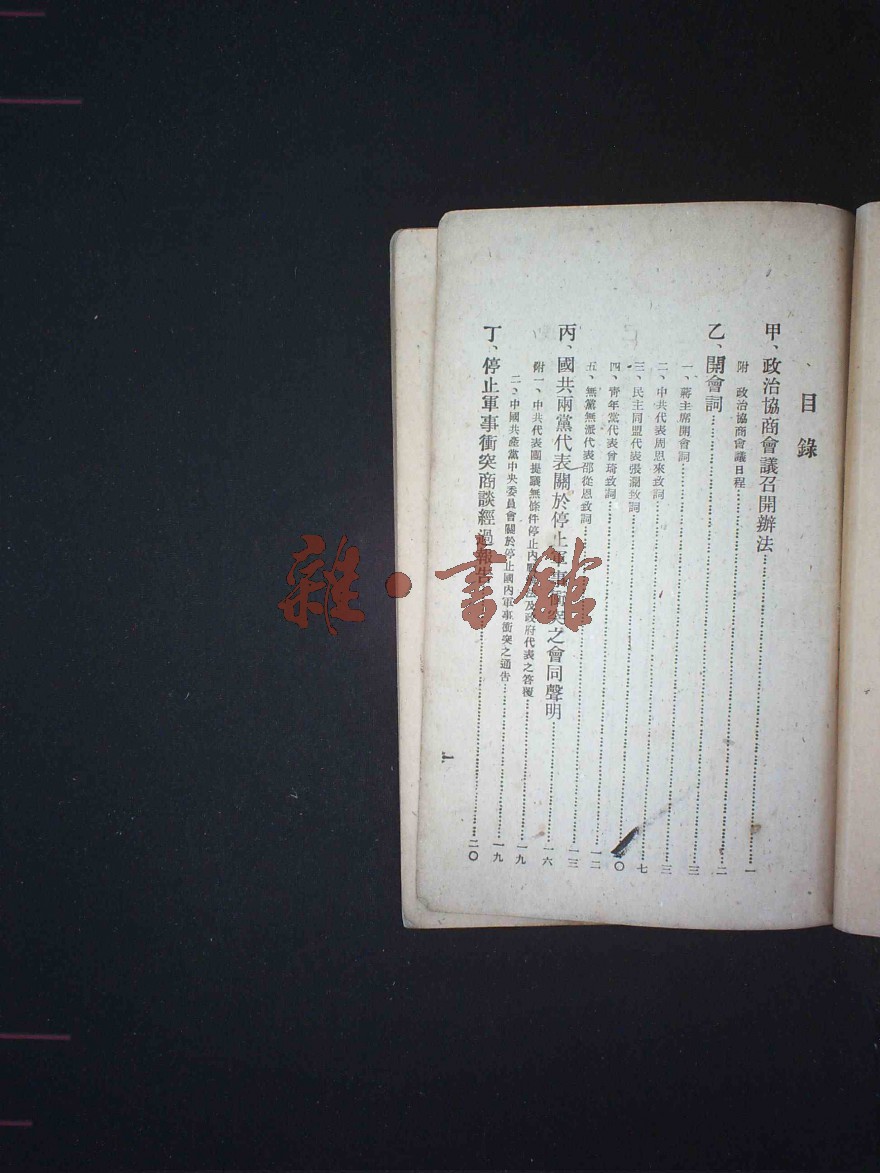 目錄
甲、政治協商會議召開辦法……一
附 政治協商會議日程……二
乙、開會詞……三
一、蔣主席開會詞……三
二、中共代表周恩來致詞……七
三、民主同盟代表張瀾致詞……一〇
四、青年黨代表曾琦致詞……一二
五、無黨無派代表邵從恩致詞……一三
丙、國共兩黨代表關於停止軍事衝突之會同聲明……一六
附一、中共代表團提議無條件停止內戰辦法及政府代表之答覆……一九
二、中國共產黨中央委員會關於停止國內軍事衝突之通告……一九
丁、停止軍事衝突商談經過報告……二〇
一
雜·書館